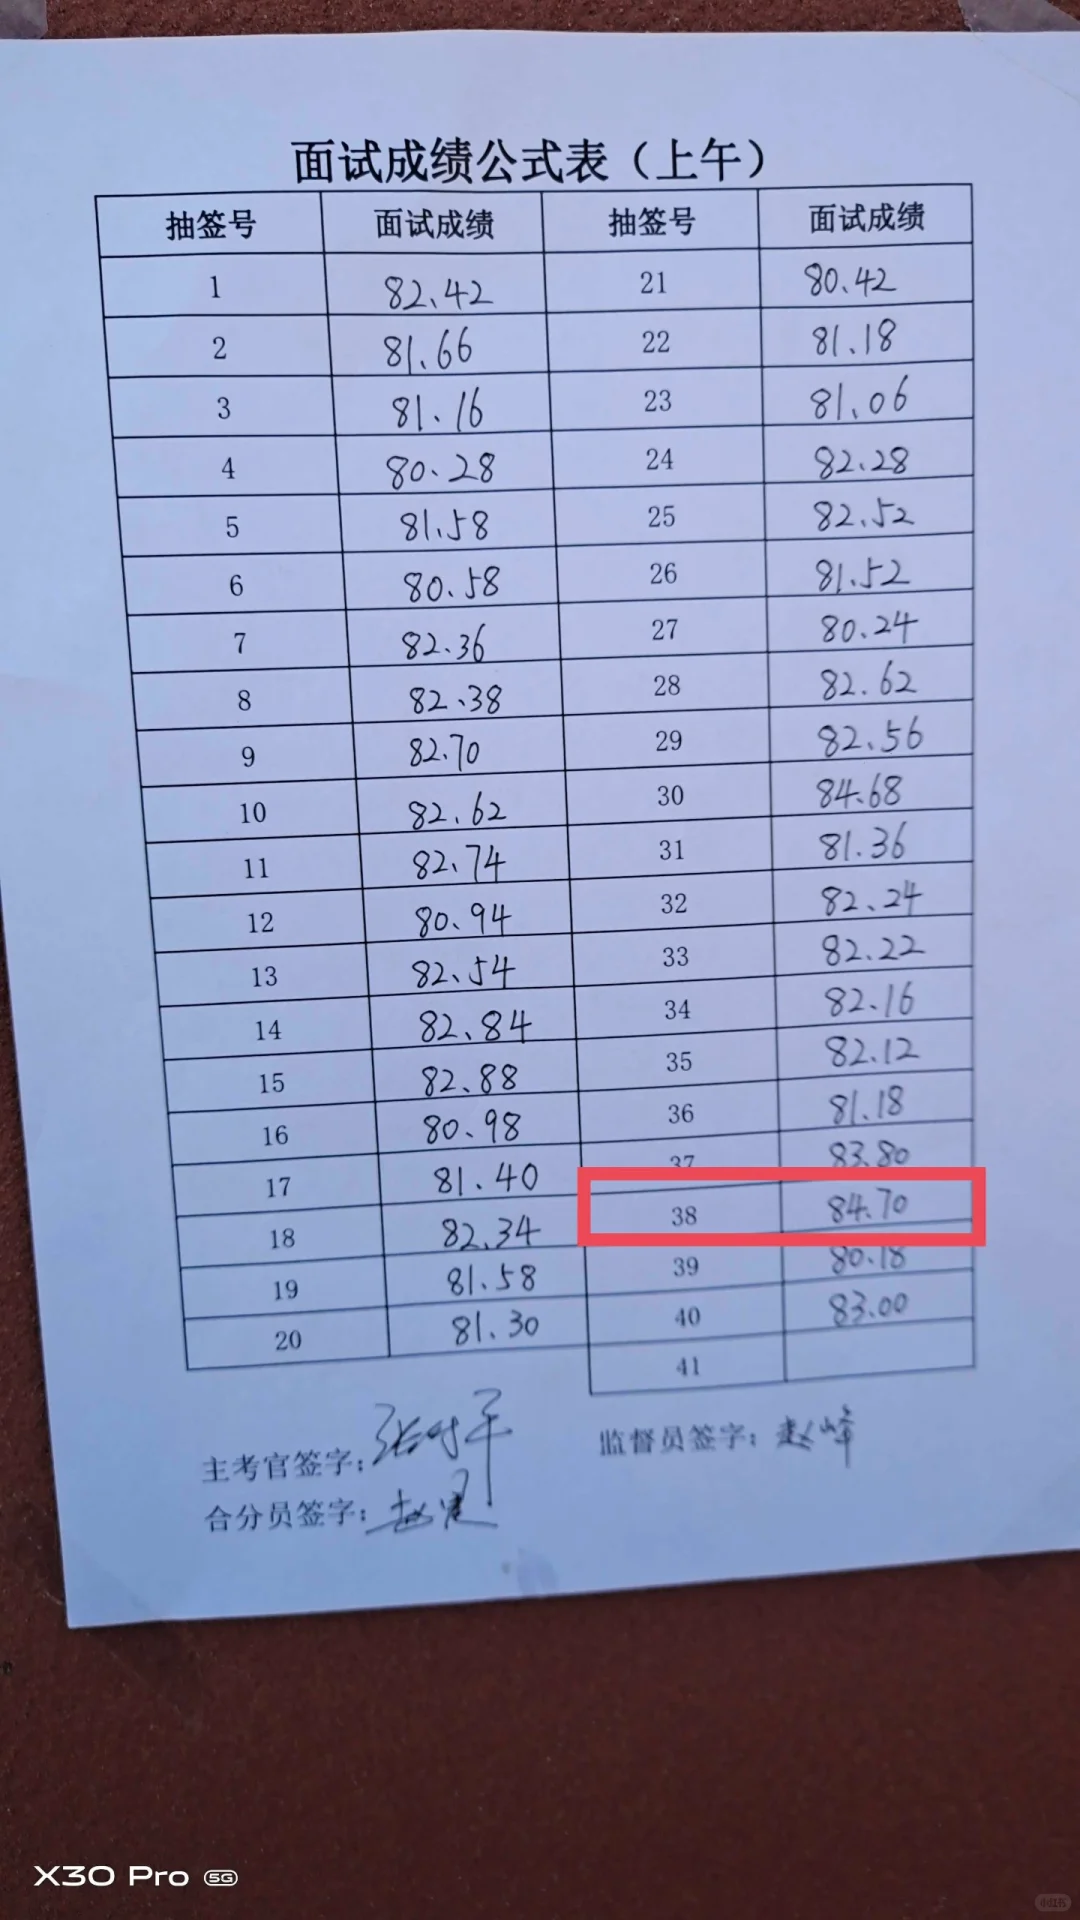 面试成绩公式表（上午）
抽签号 面试成绩 抽签号 面试成绩
1 82.42 21 80.42
2 81.66 22 81.18
3 81.16 23 81.06
4 80.28 24 82.28
5 81.58 25 82.52
6 80.58 26 81.52
7 82.36 27 80.24
8 82.38 28 82.62
9 82.70 29 82.56
10 82.62 30 84.68
11 82.74 31 81.36
12 80.94 32 82.24
13 82.54 33 82.22
14 82.84 34 82.16
15 82.88 35 82.12
16 80.98 36 81.18
17 81.40 37 83.80
18 82.34 38 84.70
19 81.58 39 80.18
20 81.30 40 83.00
41
主考官签字： 监督员签字：赵峰
合分员签字：
X30 Pro 5G